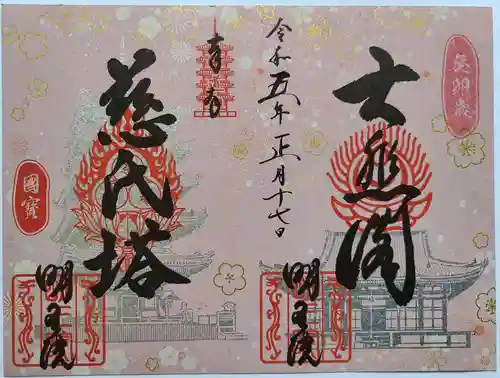 癸卯歳
大悲閣
明王院
令和五年正月十七日
奉拝
慈氏塔
國寳
明王院